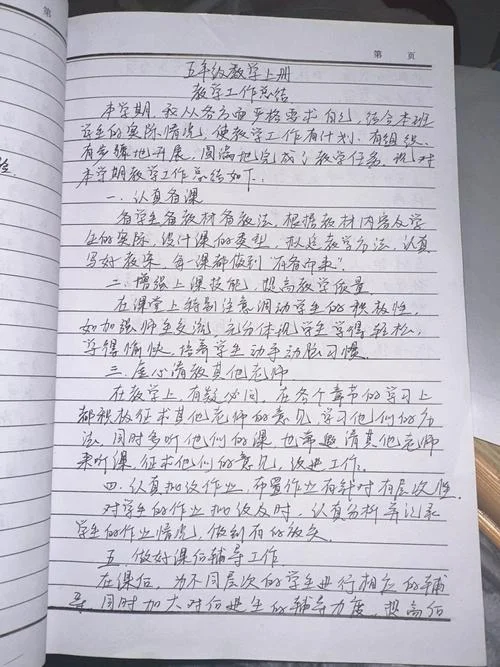 第 页
五年级数学上册
教学工作总结
本学期,我从各方面严格要求自己,结合本班
学生的实际情况,使教学工作有计划、有组织、
有步骤地开展,圆满地完成了教学任务,现对
本学期教学工作总结如下:
一、认真备课
备学生备教材备教法,根据教材内容及学
生的实际,设计课的类型,拟定教学方法,认真
写好教案,每一课都做到“有备而来”。
二、增强上课技能,提高教学质量
在课堂上特别注意调动学生的积极性,
加强师生交流,充分体现学生学得轻松,
学得愉快,培养学生动手动脑习惯
三、虚心请教其他老师
在教学上,有疑必问,在各个章节的学习上
都积极征求其他老师的意见,学习他们的方
法,同时多听他们的课,也常邀请其他老师
来听课,征求他们的意见,改进工作。
四、认真批改作业,布置作业有针对有层次性.
对学生的作业批改及时,认真分析并记录
学生的作业情况,做到有的放矢
五、做好课后辅导工作
在课后,为不同层次的学生进行相应的辅
导,同时加大对后进生的辅导力度,提高后